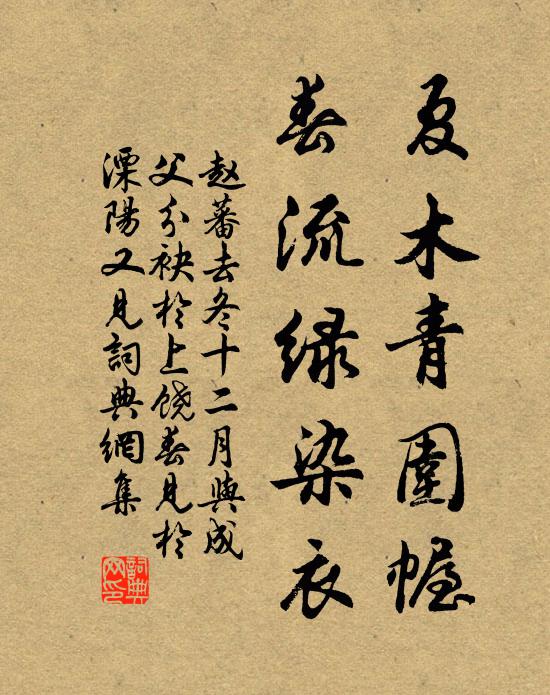 夏木青圍幄
春流绿染衣
赵蕃去冬十二月與成
父分袂於上饶春見於
溧陽又見詞典網集
詞典
网印